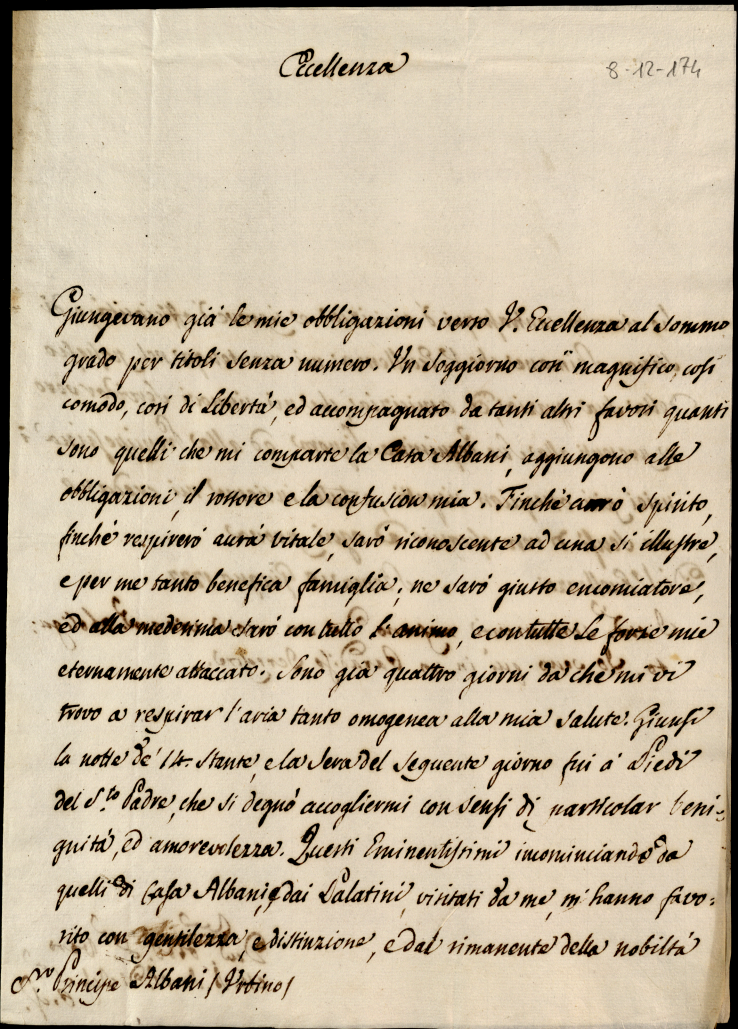 Eccellenza
8-12-174
Giungevano già le mie obbligazioni verso V. Eccellenza al sommo
grado per titoli senza numero. Un soggiorno così magnifico, così
comodo, così di libertà, ed accompagnato da tanti altri favori quanti
sono quelli che mi comparte la Casa Albani, aggiungono alle
obbligazioni, il rossore e la confusion mia. Finchè avrò spirito,
finchè respirerò aura vitale, sarò riconoscente ad una sì illustre,
e per me tanto benefica famiglia; ne sarò giusto encomiatore,
ed alla medesima sarò con tutto l'animo, e con tutte le forze mie
eternamente attaccato. Sono già quattro giorni da che mi vi
trovo a respirar l'aria tanto omogenea alla mia salute. Giunsi
la notte de' 14. stante, e la sera del seguente giorno fui a' Piedi
del S.to Padre, che si degnò accogliermi con sensi di particolar beni=
gnità, ed amorevolezza. Questi Eminentissimi incominciando da
quelli di Casa Albani, e dai Palatini, visitati da me, m'hanno favo=
rito con gentilezza, e distinzione, e dal rimanente della nobiltà
Principe Albani / Urbino /